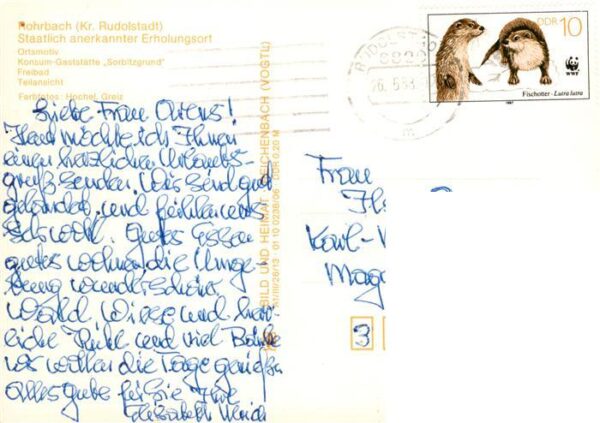 Rohrbach (Kr. Rudolstadt)
Staatlich anerkannter Erholungsort
Ortsmotiv
Konsum-Gaststätte „Sorbitzgrund"
Freibad
Teilansicht
Farbfotos: Hochel, Greiz
Liebe Frau
Heut möchte ich Ihnen
einen herzlichen Urlaubs-
gruß senden. Wir sind gut
gelandet und fühlen uns
sehr wohl. Gutes Essen
gutes wohnen die Umge-
bung wunderschön
Wald Wiese und herr-
liche Ruhe und viel
wir wollen die Tage genießen
alles gute für Sie Ihre
Elisabeth
BILD UND HEIMAT REICHENBACH (VOGTL)
A1/III/26/13 01 10 0236/06 DDR 0,20 M
DDR 10
WWF
Fischotter - Lutra lutra
1987
RUDOLSTADT
26.5.88
m
Frau
Karl-
Magd
3